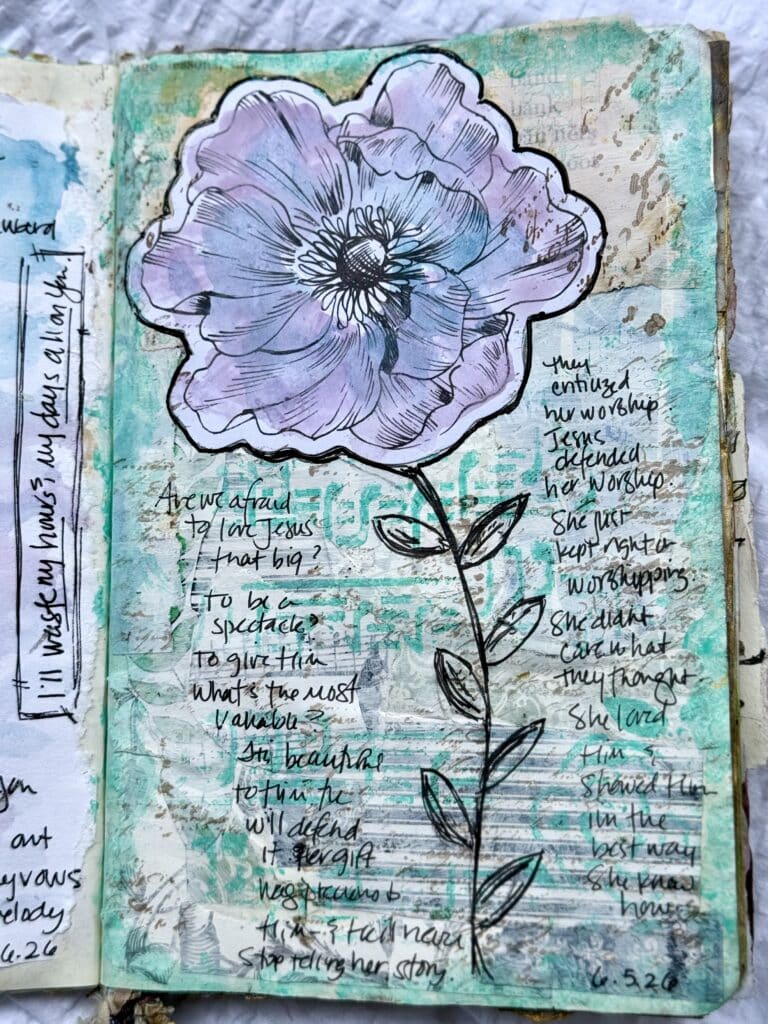 I'll waste my hours & my days all on you!
you
out
my vows
melody
6.26
Are we afraid
to love Jesus
that big?
to be a
spectacle?
To give Him
what's the most
valuable?
It's beautiful
to Him He
will defend
it Her gift
to
Him - & He'll never
Stop telling her story.
they
critiized
her worship.
Jesus
defended
her worship.
She just
kept right on
worshipping.
She didnt
care what
they thought.
She loved
Him &
Showed Him
in the
best way
She knew
how
6.5.26